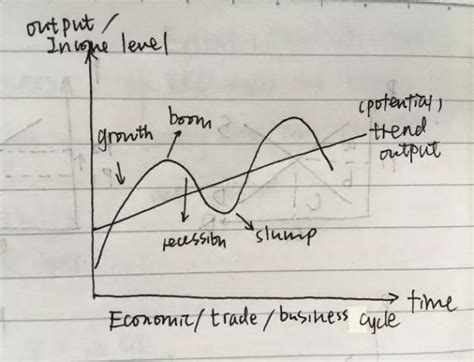 output/
Income level
boom
growth
(potential)
trend
output
recession
slump
time
Economic/trade/business cycle